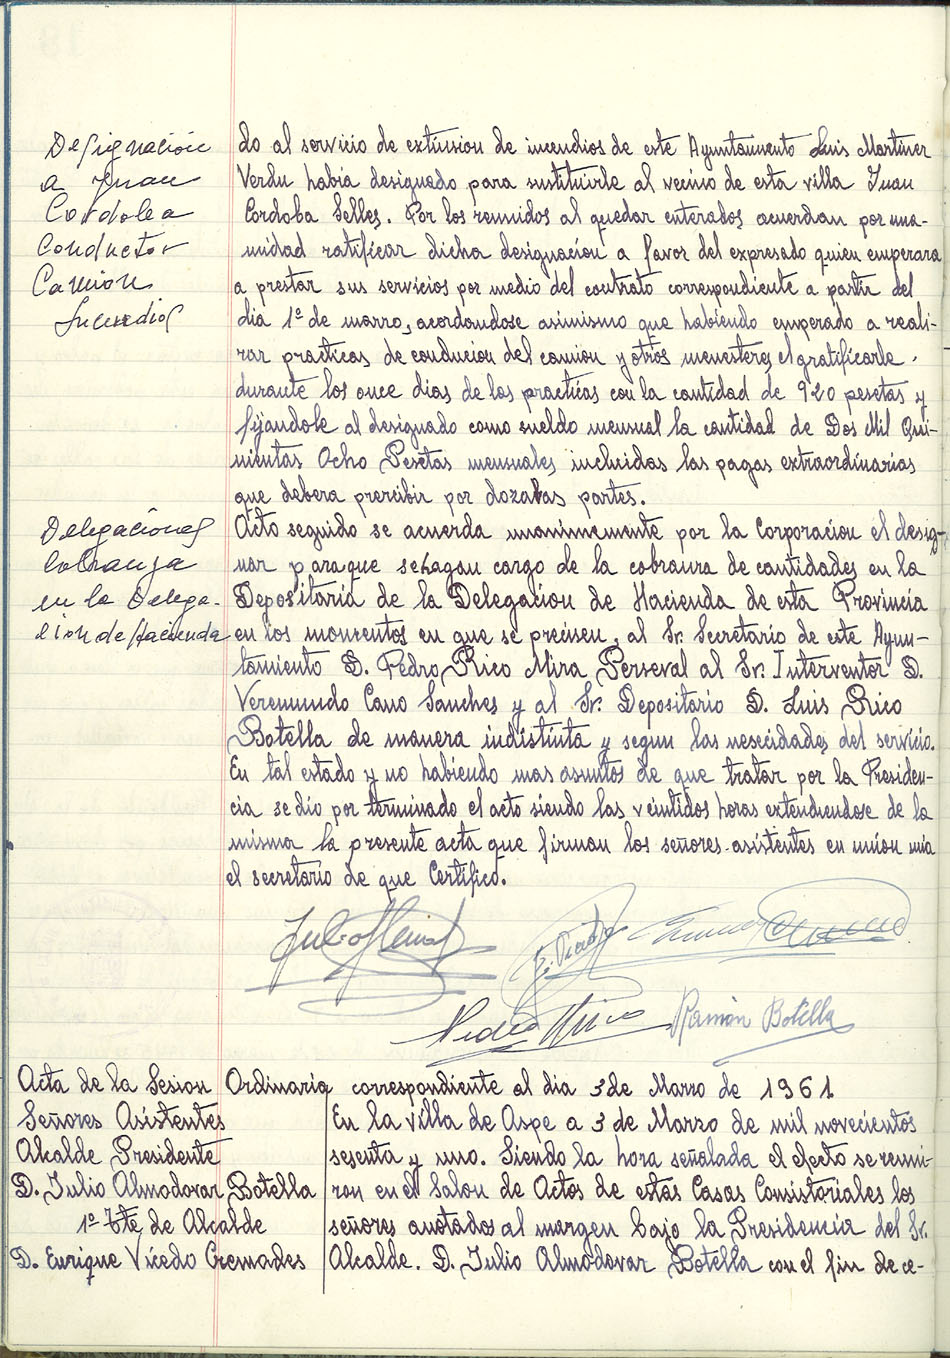 Designación
a Juan
Cordoba
Conductor
Camión
Incendios
do al servicio de extinsion de incendios de este Ayuntamiento Luis Martinez
Verdu habia designado para sustituirle al vecino de esta villa Juan
Cordoba Selles. Por los reunidos al quedar enterados acuerdan por una-
nimidad ratificar dicha designacion a favor del expresado quien emperara
a prestar sus servicios por medio del contrato correspondiente a partir del
dia 1º de marzo, acordandose asimismo que habiendo emperado a reali-
rar practicas de conducion del camion y otros menesteres el gratificarle.
durante los once dias de las practicas con la cantidad de 920 pesetas y
fijandole al designado como sueldo mensual la cantidad de Dos Mil Qui-
nientas Ocho Pesetas mensuales incluidas las pagas extraordinarias
que debera prercibir por dozabas partes.
Delegaciones
cobranza
en la Delega-
cion de Hacienda
Acto seguido se acuerda unanimemente por la Corporacion el desig-
nar para que se hagan cargo de la cobranra de cantidades en la
Depositaria de la Delegacion de Hacienda de esta Provincia
en los momentos en que se precisen, al Sr. Secretario de este Ayun-
tamiento D. Pedro Rico Mira Perseval al Sr. Interventor D.
Veremundo Cano Sanches y al Sr. Depositario D. Luis Rico
Botella de manera indistinta y segun las nesecidades del servicio.
En tal estado y no habiendo mas asuntos de que tratar por la Presiden-
cia se dio por terminado el acto siendo las veintidos horas extendiendose de la
misma la presente acta que firman los señores asistentes en union mia
el secretario de que Certifico.
Pedro Rico
Ramón Botella
Acta de la Sesion Ordinaria correspondiente al dia 3 de Marzo de 1961
Señores Asistentes
Alcalde Presidente
D. Julio Almodovar Botella
1º Tte de Alcalde
D. Enrique Vicedo Cremades
En la villa de Aspe a 3 de Marzo de mil novecientos
sesenta y uno. Siendo la hora señalada el efecto se reuni-
ron en el Salon de Actos de estas Casas Consistoriales los
señores anotados al margen bajo la Presidencia del Sr.
Alcalde. D. Julio Almodovar Botella con el fin de ce-